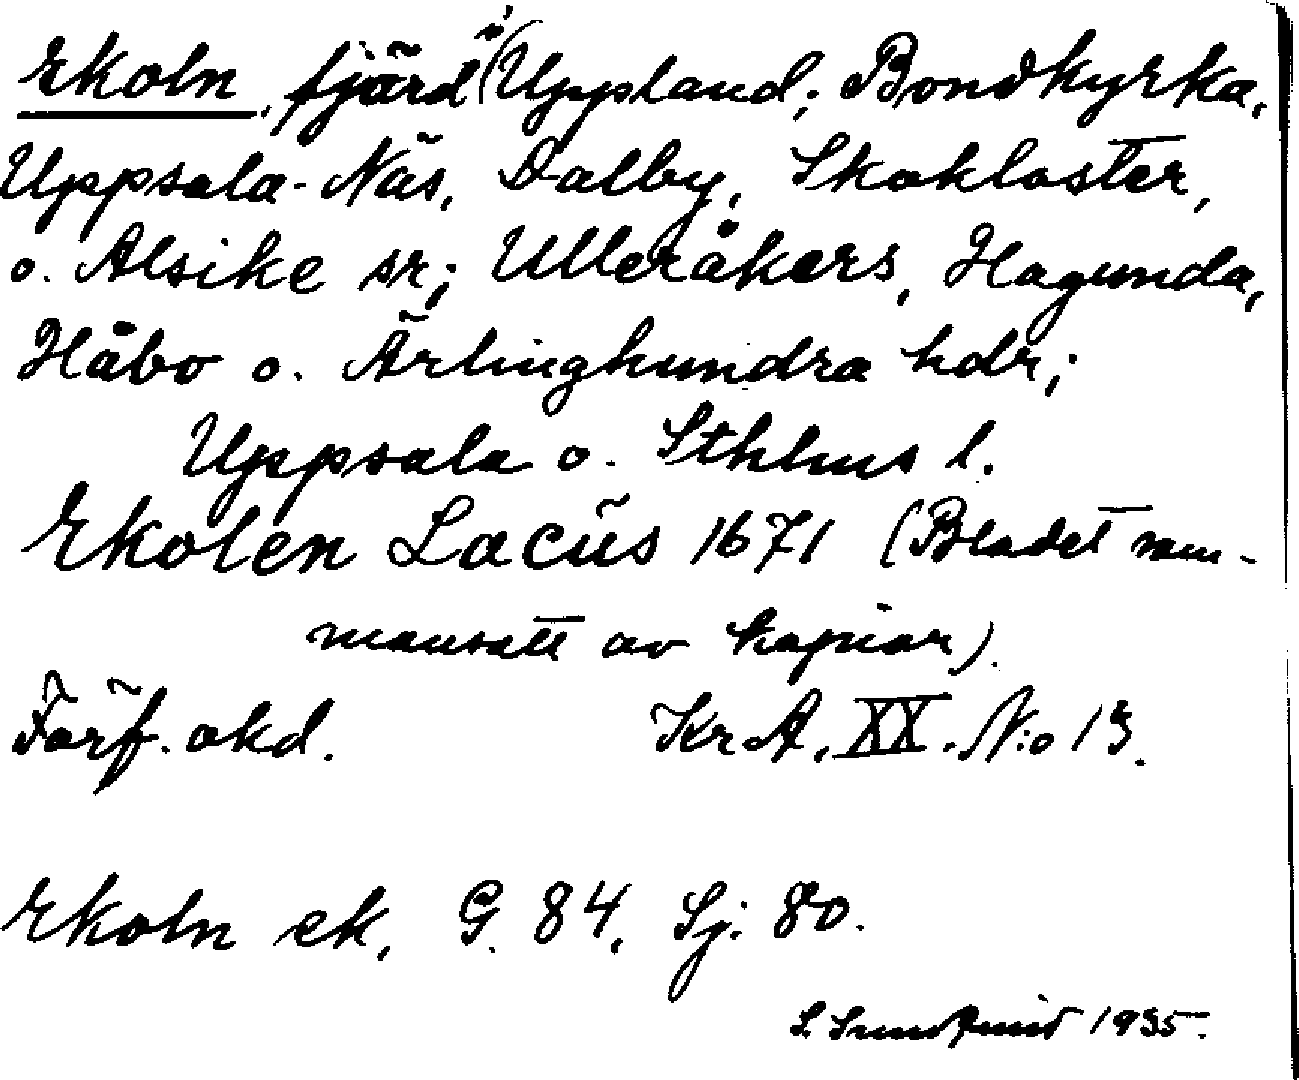 Ekoln, fjärd i (Uppland; Bondkyrka,
Uppsala-Näs, Dalby, Skokloster,
o. Alsike sr; Ulleråkers, Hagunda,
Håbo o. Ärlinghundra hdr;
Uppsala o. Sthlms l.
Ekolen Lacus 1671 (Bladet sam-
mansatt av kopior).
Förf. okd. Kr A. XX. N:o 13.
Ekoln ek. G. 84, Sj: 80.
S. Sundqvist 1935.